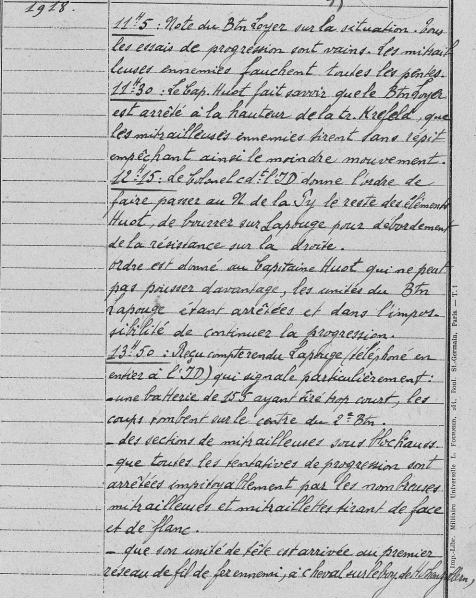 1918.
11h5 : Note du Btn Loyer sur la situation. Tous
les essais de progression sont vains. Les mitrail
leuses ennemies fauchent toutes les pentes.
11h30 : Le Cap. Huot fait savoir que le Btn Loyer
est arrêté à la hauteur de la tr. Krefeld, que
les mitrailleuses ennemies tirent sans répit
empêchant ainsi le moindre mouvement.
12h15 : Le Colonel cdt l'ID donne l'ordre de
faire passer au N de la Py le reste des éléments
Huot, de bourrer sur Lapouge pour débordement
de la résistance sur la droite.
Ordre est donné au Capitaine Huot qui ne peut
pas pousser davantage, les unités du Btn
Lapouge étant arrêtées et dans l'impos-
sibilité de continuer la progression.
13h50 : Reçu compte rendu Lapouge (téléphoné en
entier à l'ID) qui signale particulièrement :
- une batterie de 155 ayant tiré trop court, les
coups tombent sur le centre du 2e Btn
- des sections de mitrailleuses sous
- que toutes les tentatives de progression sont
arrêtées impitoyablement par les nombreuses
mitrailleuses et mitraillettes tirant de face
et de flanc.
- que son unité de tête est arrivée au premier
réseau de fil de fer ennemi, à cheval sur le boy. de
Imp.-Lib. Militaire Universelle L. Fournier, Boul. St-Germain, Paris — T.